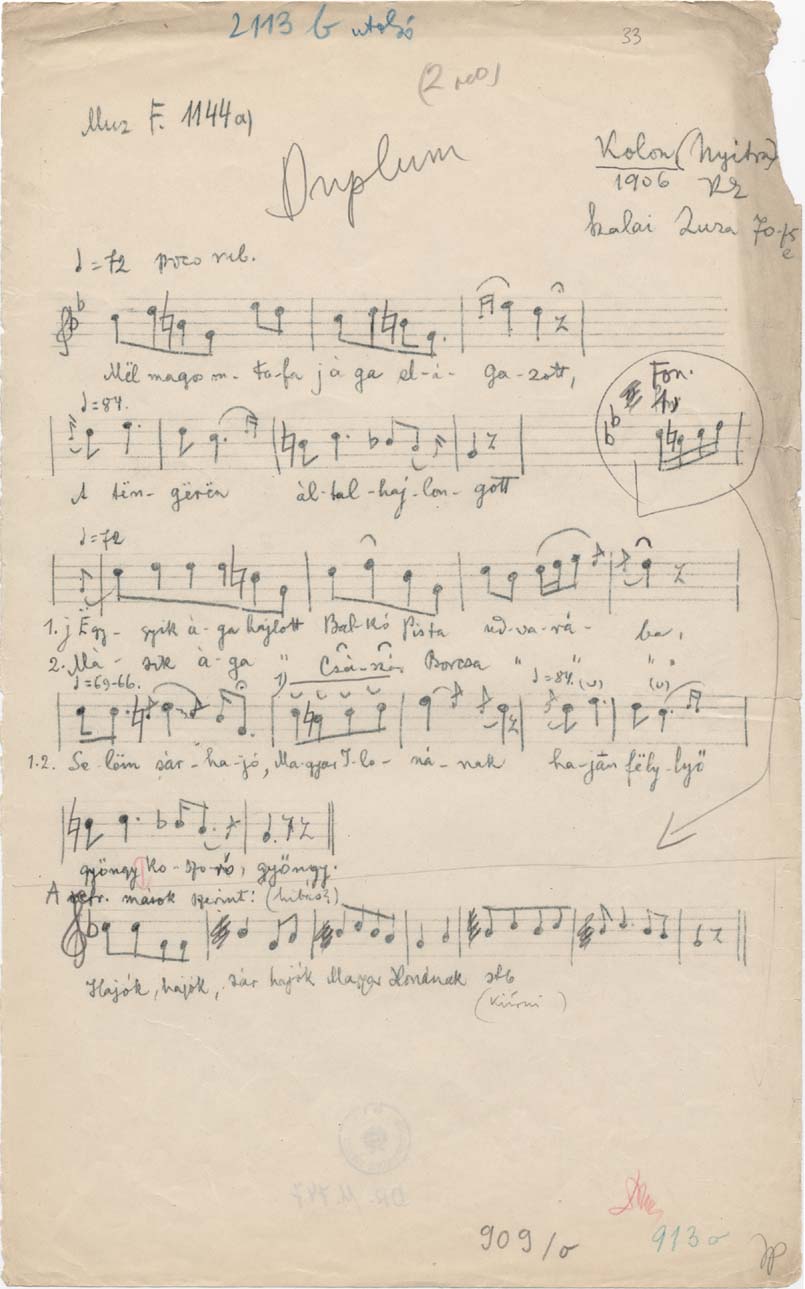 2113 b utolsó
33
Muz F. 1144a)
Duplum
Kolon (Nyitra)
1906
Szalai Zuza 70-75
♩=72 poco rub.
Mël magos m- fa-fa jàga el-á- ga-zott,
♩=84.
Fon.
A tën- gërën àl-tal-haj-lon- gott
♩=72
1. j Ëgy- gyik à-ga hajlott Bal-kó Pista ud-va-rá- ba,
2. Mà- szk à-ga " Csá-szár Borcsa " " "
♩=69-66. 1) ♩=84.
1.2. Se-lëm sár-ha-jó, Ma-gyar I-lo-ná-nak ha-ján fëly-lyő
gyöngy ko-szo-ró, gyöngy.
A refr. mások szerint: (hibás?)
Hajók, hajók, sár hajók Magyar Ilonának stb
(kiírni)
909/o
913 o